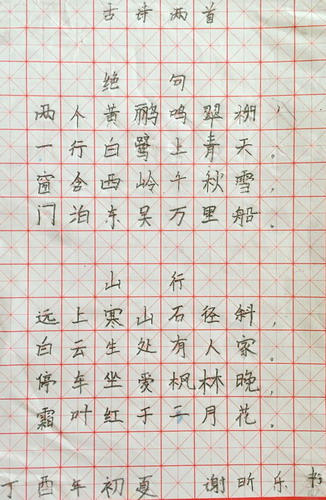 古诗两首
绝句
两个黄鹂鸣翠柳，
一行白鹭上青天。
窗含西岭千秋雪，
门泊东吴万里船。
山行
远上寒山石径斜，
白云生处有人家。
停车坐爱枫林晚，
霜叶红于二月花。
丁酉年初夏 谢昕乐书